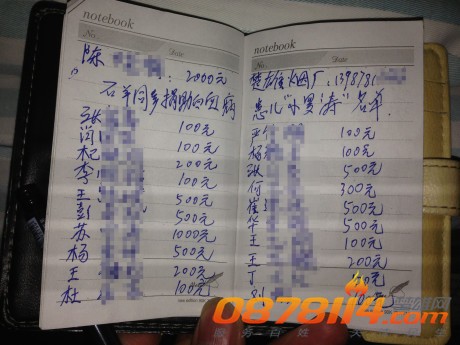 notebook
No. Date
陈 : 2000元
石羊同乡捐助白血病
张 100元
闫 100元
杞 200元
李 100元
王 500元
彭 500元
苏 1000元
杨 500元
王 200元
杜 100元
notebook
No. Date
楚雄烟厂:1398781
患儿"小男涛"名单
严 100元
杨 100元
张 500元
何 300元
崔 500元
华 500元
王 100元
王 200元
丁
0878114.com